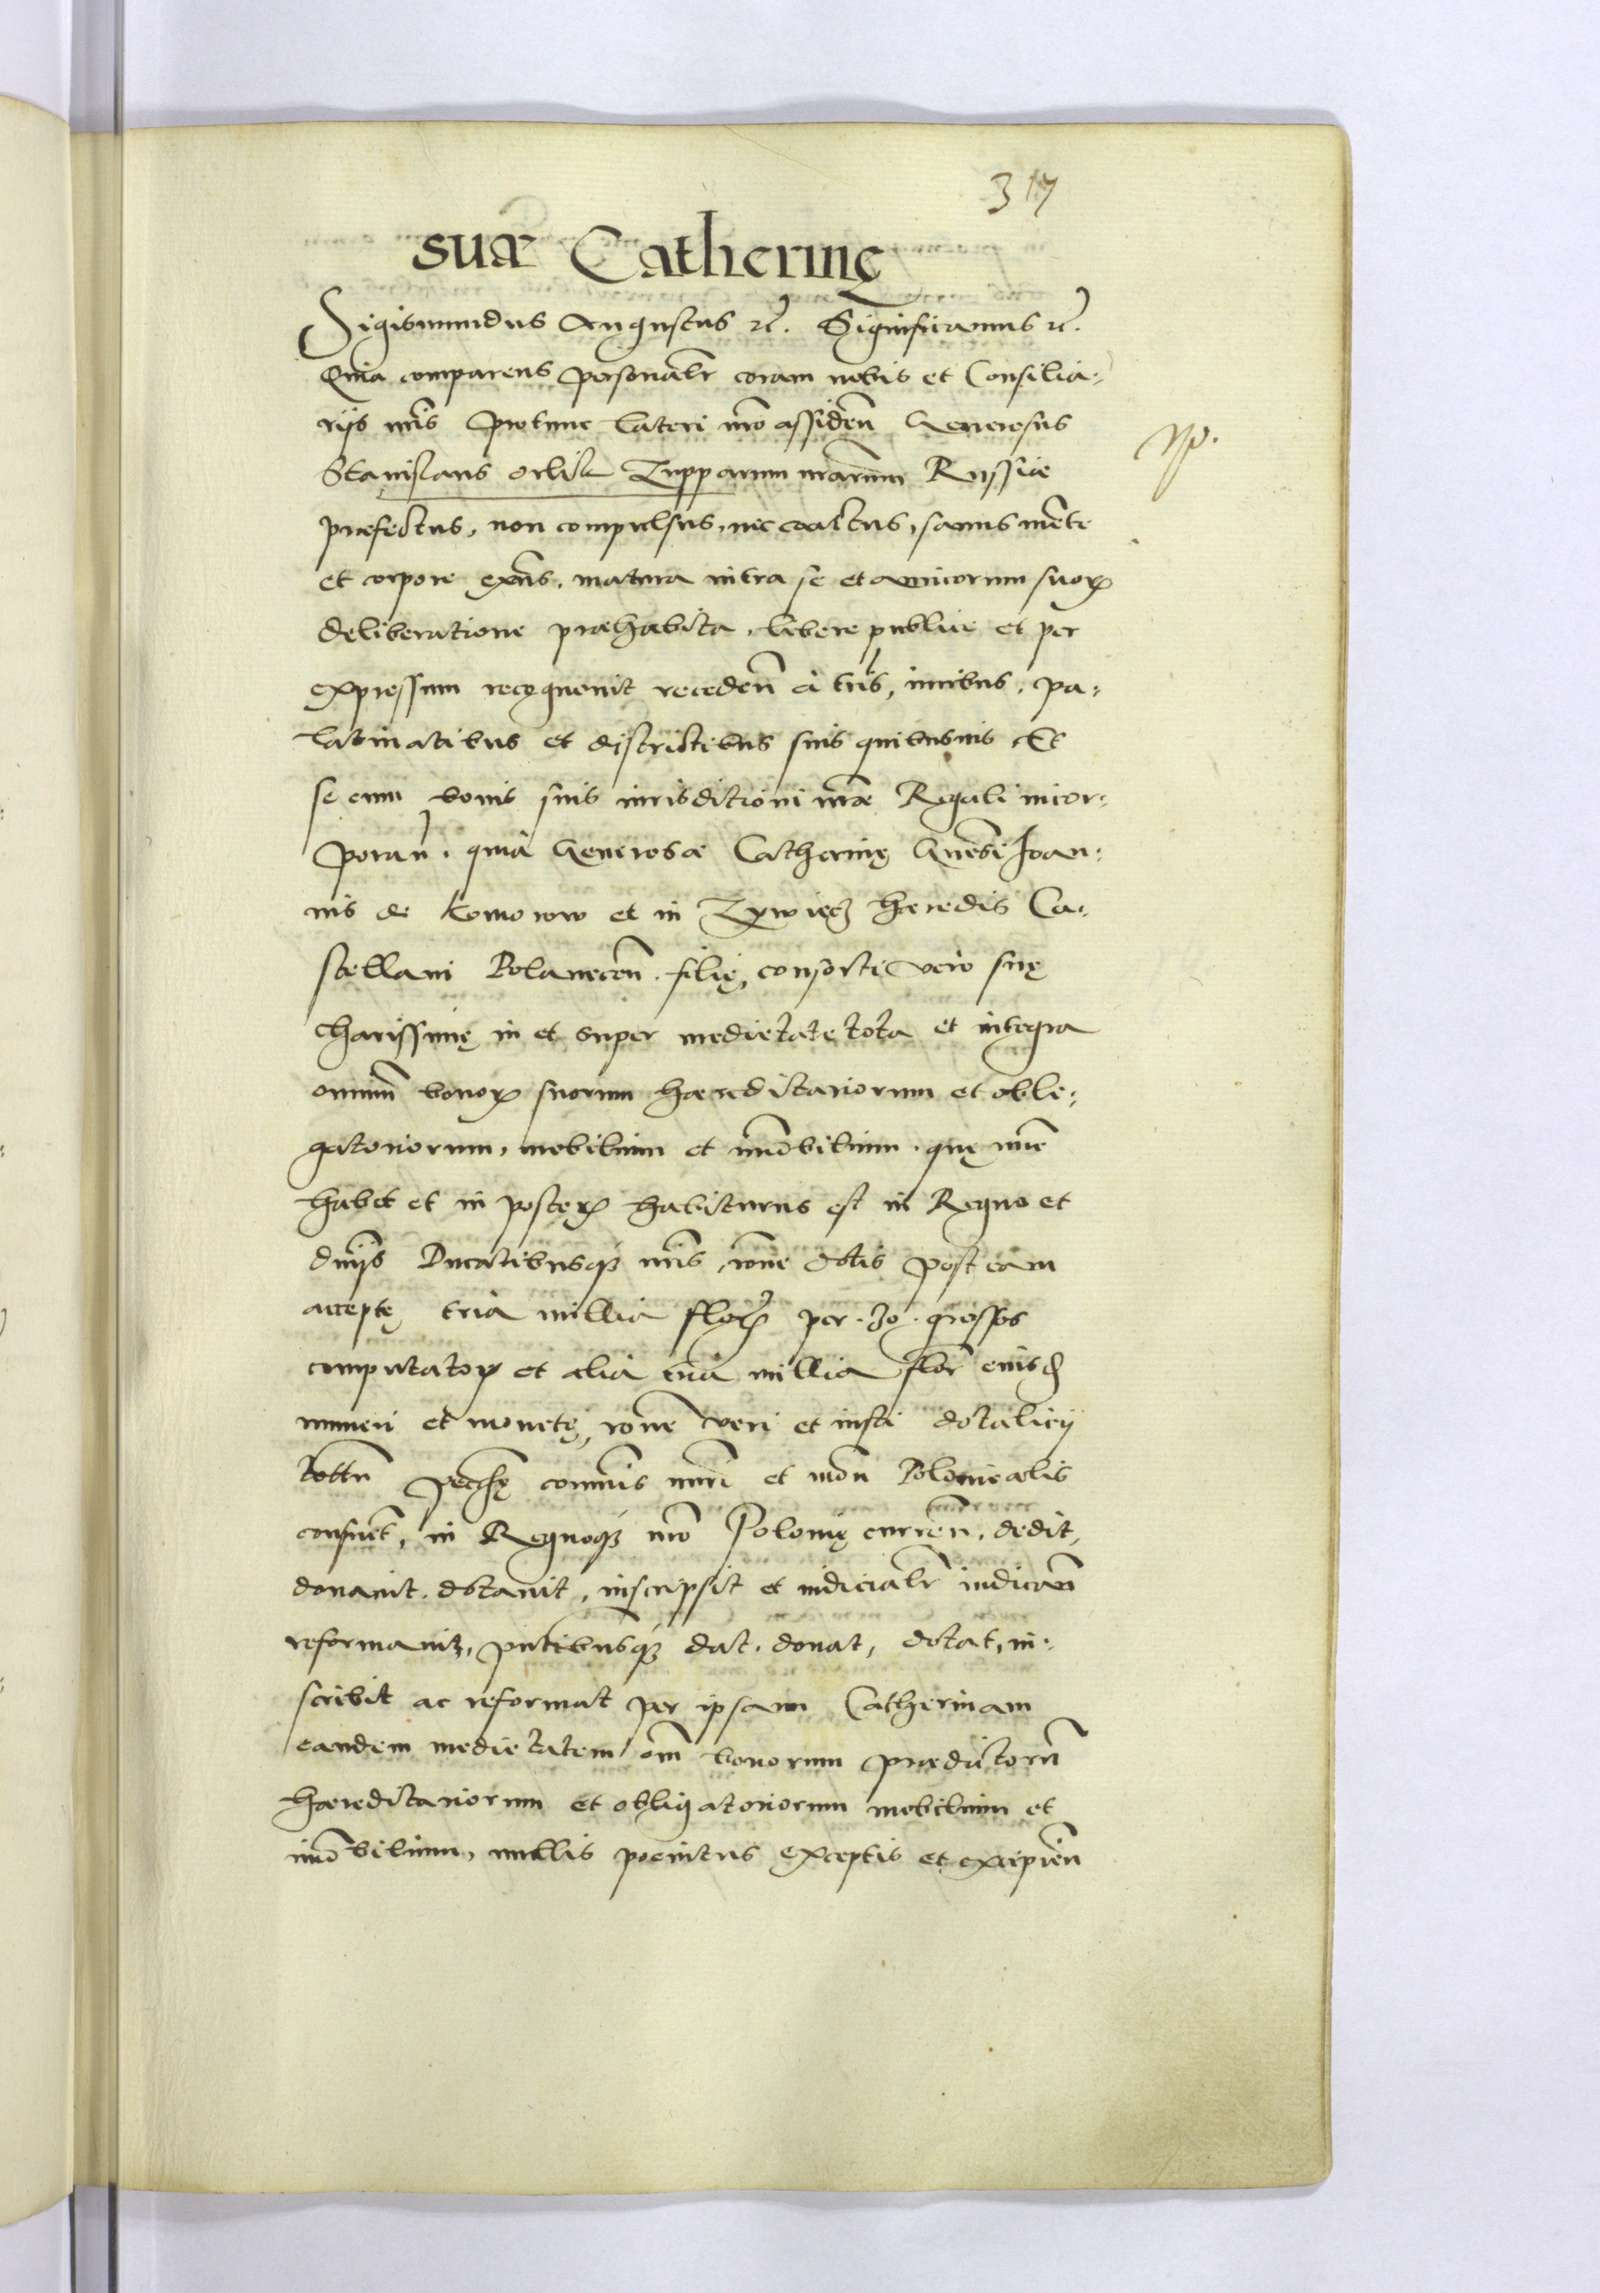 317
suæ Catherinę
Sigismundus Augustus etc. Significamus etc.
Quia comparens personalr coram nobis et Consilia-
rijs nris protunc lateri nro assiden Generosus
Stanislaus orlik Zupparum nrarum Russiæ
præfectus, non compulsus, nec coactus, sanus mente
et corpore exns, matura intra se et amicorum suorȝ
deliberatione præhabita, libere publice et per
expressum recognouit receden à trris, iuribus, pa-
latinatibus et districtibus suis quibusuis Et
se cum bonis suis iurisditioni nræ Regali incor-
poran. quia Generosæ Catherinę Gnosi Joan-
nis de Komorow et in Zywiecz hæredis Ca-
stellani Polanecen. filię, consorti vero suę
charissimę in et super medietate tota et integra
omnium bonorȝ suorum hæreditariorum et obli-
gatoriorum, mobilium et imobilium, quę nunc
habet et in posterȝ habiturus est in Regno et
dnijs Ducatibusqȝ nris, rone dotis post eam
acceptę tria millia florȝ per .30. grossos
computatorȝ et alia tria millia flor eiusd
numeri et monetę, rone veri et iusti dotalicij
totum pecunię comunis nuri et mon Polonicalis
consuet, in Regnoqȝ nro Polonię curren, dedit,
donauit, dotauit, inscripsit et iudicialr iudican
reformauit, pntibusqȝ dat, donat, dotat, in-
scribit ac reformat per ipsam Catherinam
eandem medietatem om bonorum prædictorum
hæreditariorum et obligatoriorum mobilium et
imobilium, nullis poenitus exceptis et excipien